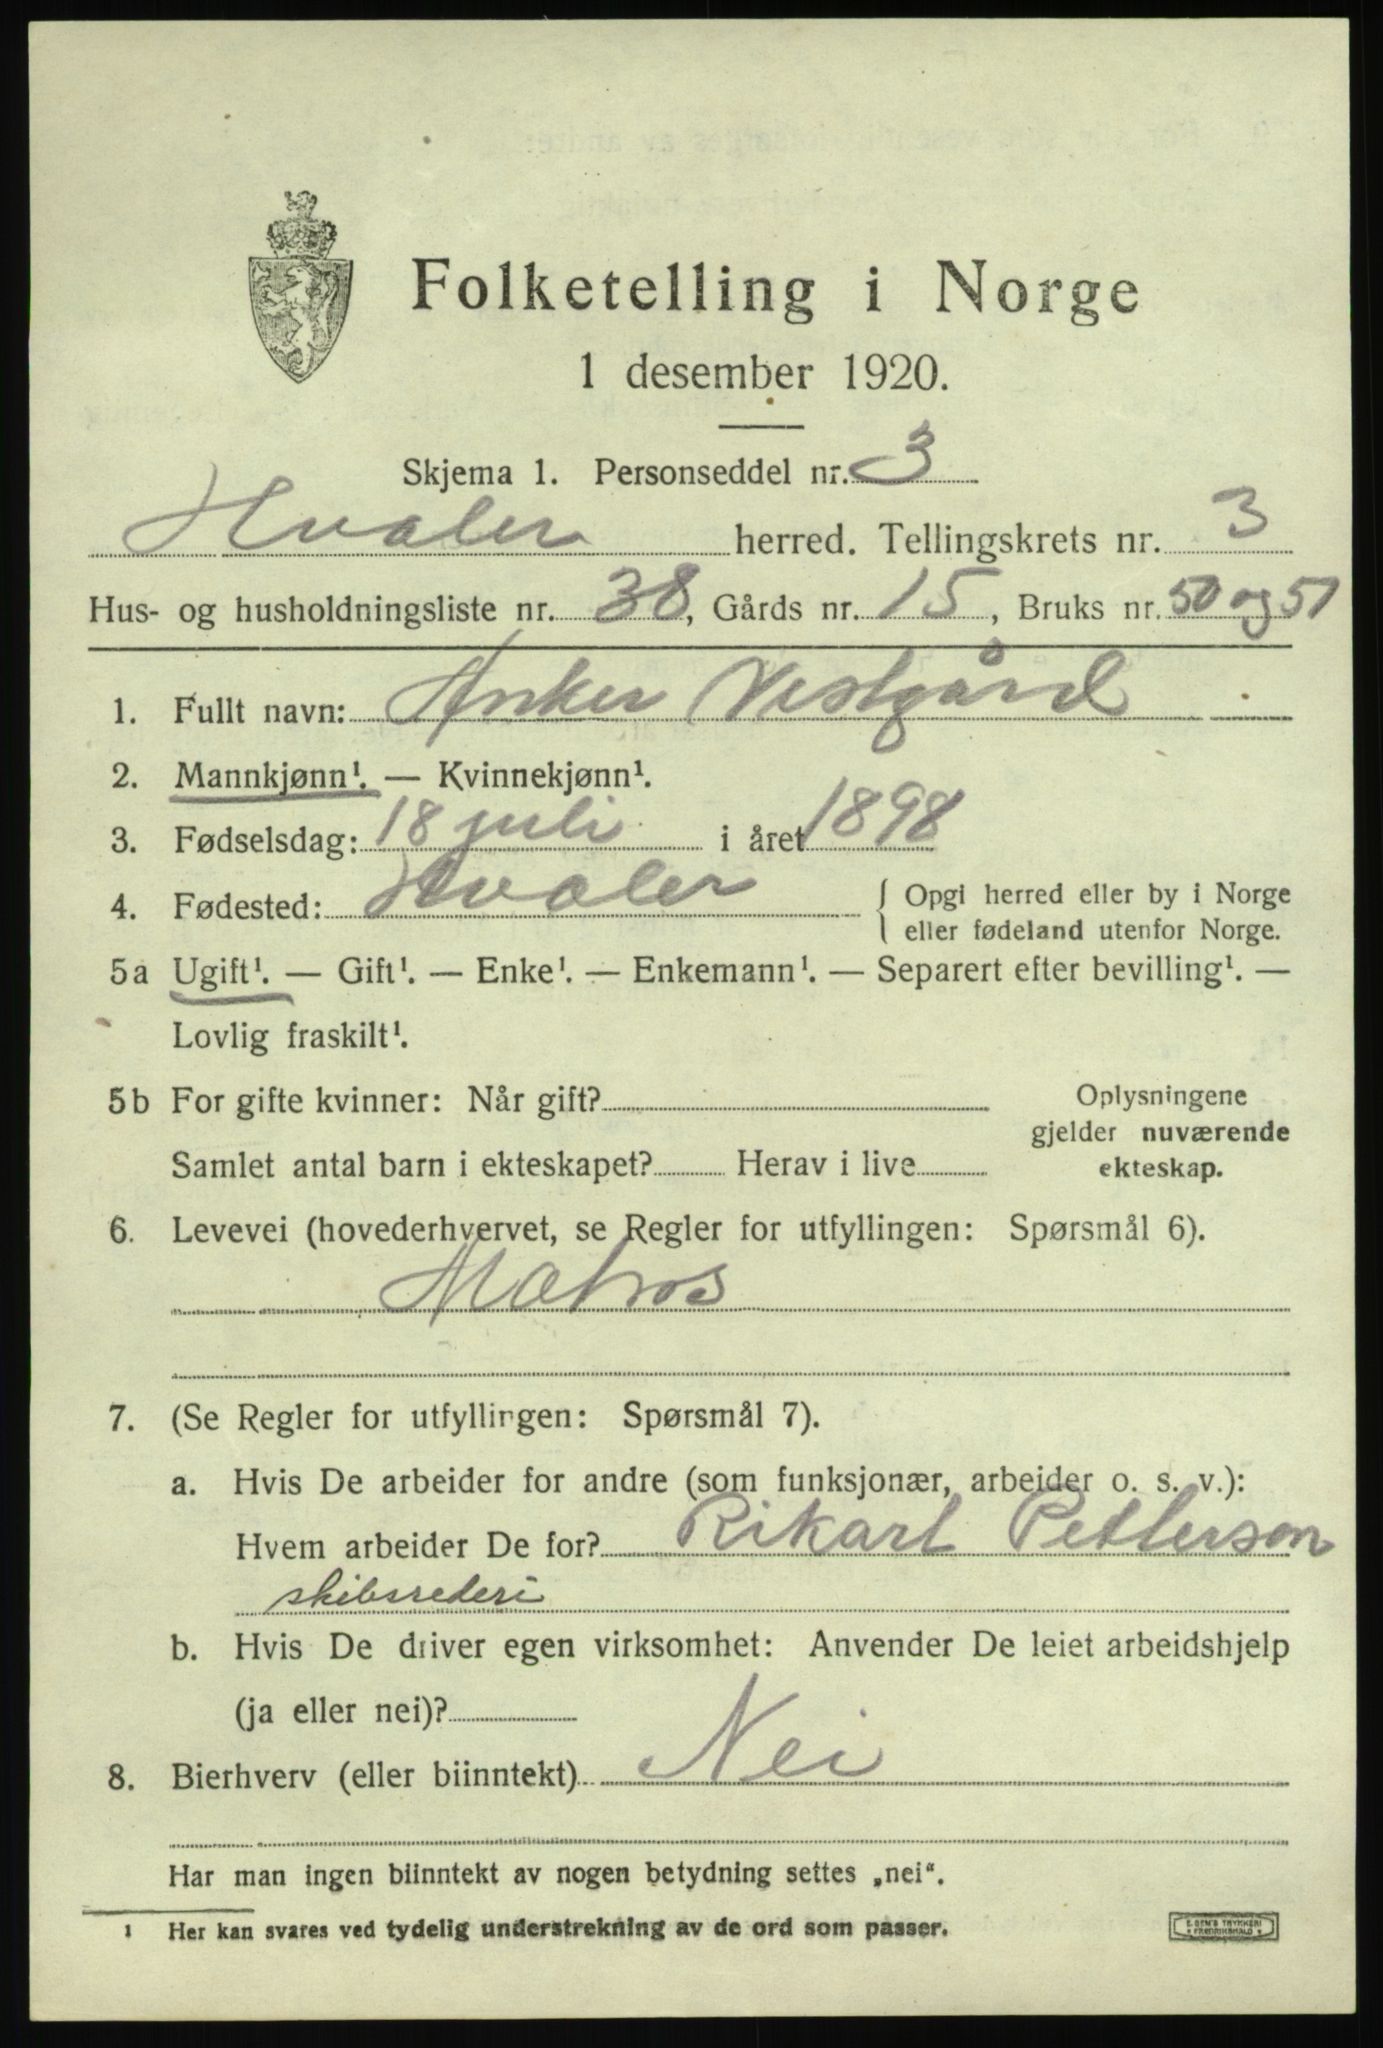 Folketelling i Norge
1 desember 1920.
Skjema 1. Personseddel nr. 3
Hvaler herred. Tellingskrets nr. 3
Hus- og husholdningsliste nr. 38, Gårds nr. 15, Bruks nr. 50 og 51
1. Fullt navn: Anker Vestgård
2. Mannkjønn¹. — Kvinnekjønn¹.
3. Fødselsdag: 18 juli i året 1898
4. Fødested: Hvaler { Opgi herred eller by i Norge
eller fødeland utenfor Norge.
5a Ugift¹. — Gift¹. — Enke¹. — Enkemann¹. — Separert efter bevilling¹. —
Lovlig fraskilt¹.
5b For gifte kvinner: Når gift? Oplysningene
gjelder nuværende
Samlet antal barn i ekteskapet? Herav i live ekteskap.
6. Levevei (hovederhvervet, se Regler for utfyllingen: Spørsmål 6).
Matros
7. (Se Regler for utfyllingen: Spørsmål 7).
a. Hvis De arbeider for andre (som funksjonær, arbeider o. s. v.):
Hvem arbeider De for? Rikart Petterson
skibsrederi
b. Hvis De driver egen virksomhet: Anvender De leiet arbeidshjelp
(ja eller nei)?
8. Bierhverv (eller biinntekt) Nei
Har man ingen biinntekt av nogen betydning settes „nei“.
¹ Her kan svares ved tydelig understrekning av de ord som passer.
E. SEM'S TRYKKERI
FREDRIKSHALD